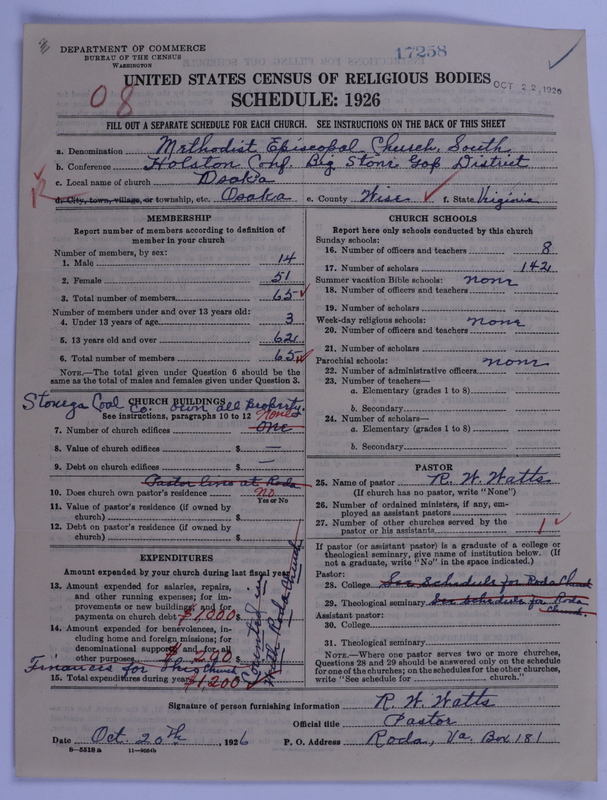 DEPARTMENT OF COMMERCE
BUREAU OF THE CENSUS
WASHINGTON
17258
UNITED STATES CENSUS OF RELIGIOUS BODIES
OCT 22, 1926
08
SCHEDULE: 1926
FILL OUT A SEPARATE SCHEDULE FOR EACH CHURCH. SEE INSTRUCTIONS ON THE BACK OF THIS SHEET
a. Denomination Methodist Episcopal Church, South
b. Conference Holston Conf. Big Stone Gap District
c. Local name of church Osaka
d. City, town, village, or township, etc. Osaka e. County Wise f. State Virginia
MEMBERSHIP
Report number of members according to definition of member in your church
Number of members, by sex:
1. Male 14
2. Female 51
3. Total number of members 65
Number of members under and over 13 years old:
4. Under 13 years of age 3
5. 13 years old and over 62
6. Total number of members 65
NOTE.—The total given under Question 6 should be the same as the total of males and females given under Question 3.
CHURCH BUILDINGS
Stonega Coal Co. own all property.
See instructions, paragraphs 10 to 12 None
7. Number of church edifices One
8. Value of church edifices $ —
9. Debt on church edifices $ —
Pastor lives at Roda
10. Does church own pastor's residence No
Yes or No
11. Value of pastor's residence (if owned by church) $
12. Debt on pastor's residence (if owned by church) $
EXPENDITURES
Amount expended by your church during last fiscal year
13. Amount expended for salaries, repairs, and other running expenses; for improvements or new building; and for payments on church debt $1,000
14. Amount expended for benevolences, including home and foreign missions; for denominational support; and for all other purposes $200
Finances for this church
Counted in
With Roda Church
15. Total expenditures during year $1200
CHURCH SCHOOLS
Report here only schools conducted by this church
Sunday schools:
16. Number of officers and teachers 8
17. Number of scholars 142
Summer vacation Bible schools: none
18. Number of officers and teachers
19. Number of scholars
Week-day religious schools: none
20. Number of officers and teachers
21. Number of scholars
Parochial schools: none
22. Number of administrative officers
23. Number of teachers—
a. Elementary (grades 1 to 8)
b. Secondary
24. Number of scholars—
a. Elementary (grades 1 to 8)
b. Secondary
PASTOR
25. Name of pastor R. W. Watts
(If church has no pastor, write "None")
26. Number of ordained ministers, if any, employed as assistant pastors
27. Number of other churches served by the pastor or his assistants 1
If pastor (or assistant pastor) is a graduate of a college or theological seminary, give name of institution below. (If not a graduate, write "No" in the space indicated.)
Pastor:
28. College See Schedule for Roda Church
29. Theological seminary See Schedule for Roda Church
Assistant pastor:
30. College
31. Theological seminary
NOTE.—Where one pastor serves two or more churches, Questions 28 and 29 should be answered only on the schedule for one of the churches; on the schedules for the other churches, write "See schedule for church."
Signature of person furnishing information R. W. Watts
Official title Pastor
Date Oct. 20th, 1926 P. O. Address Roda, Va. Box 181
8—5518a 11—9054b